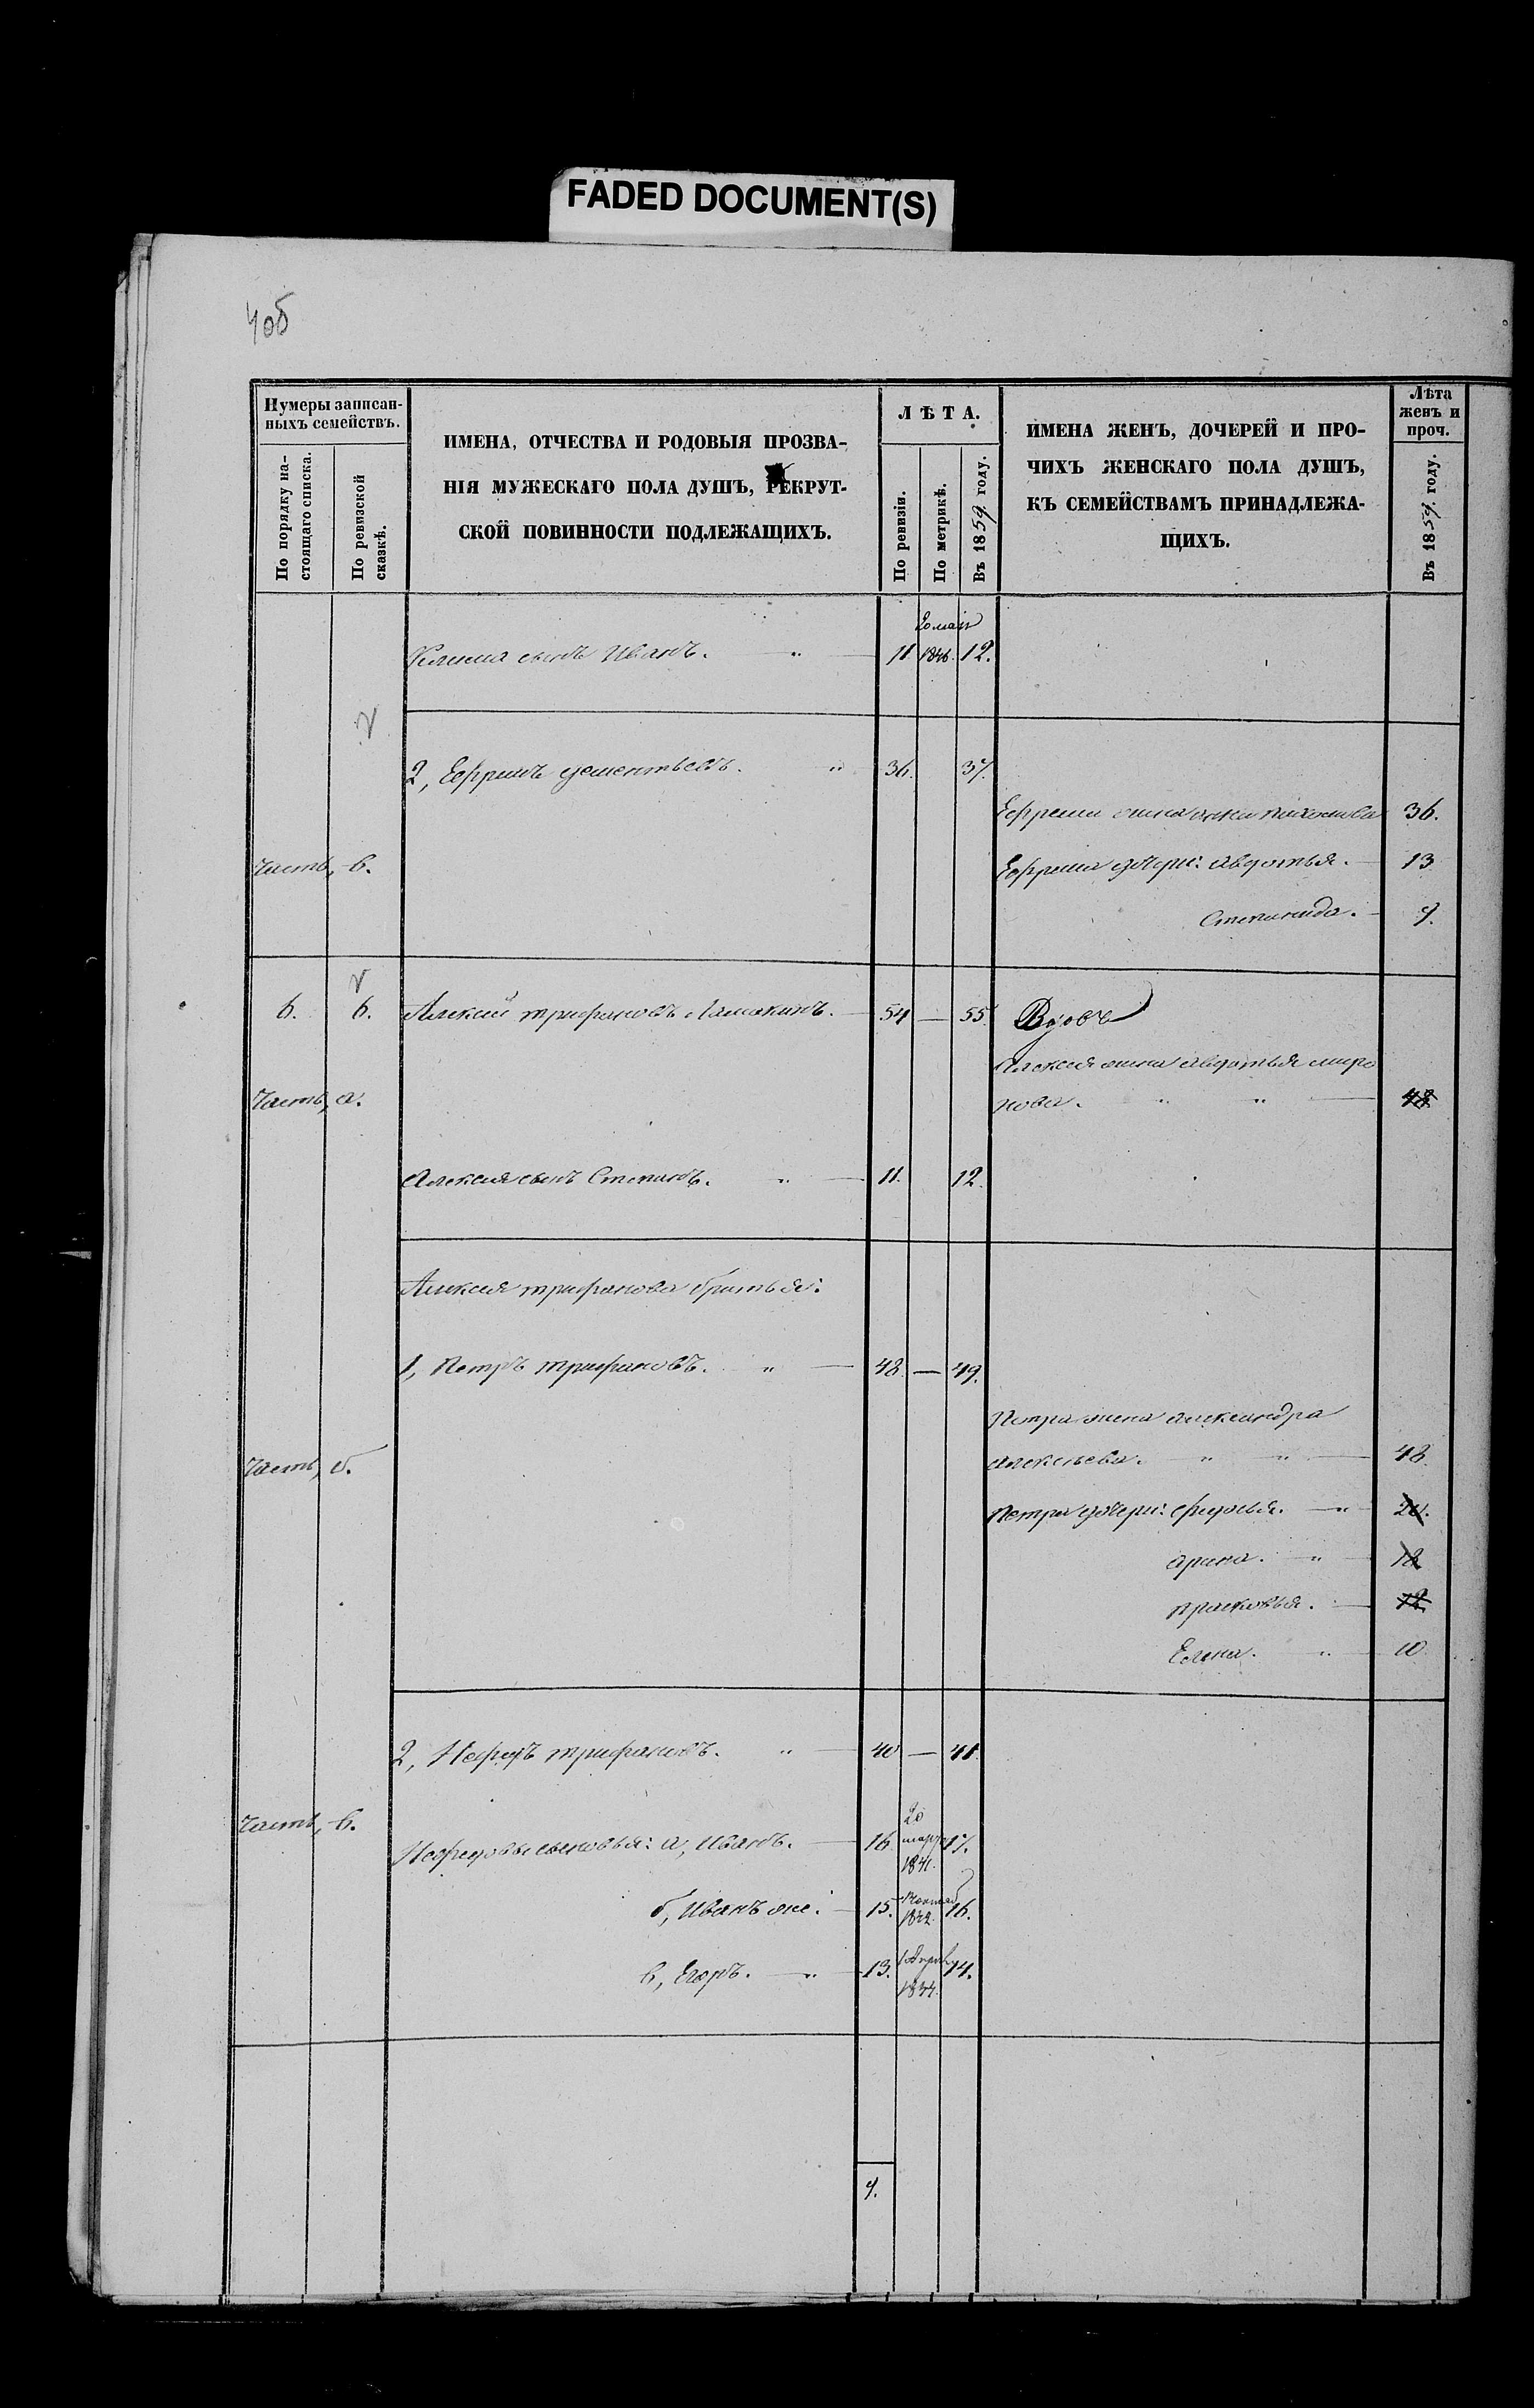 FADED DOCUMENT(S)
4об
Нумеры записан-
ныхъ семействъ.
По порядку на-
стоящаго списка.
По ревизской
сказкѣ.
ИМЕНА, ОТЧЕСТВА И РОДОВЫЯ ПРОЗВА-
НІЯ МУЖЕСКАГО ПОЛА ДУШЪ, РЕКРУТ-
СКОЙ ПОВИННОСТИ ПОДЛЕЖАЩИХЪ.
ЛѢТА.
По ревизіи.
По метрикѣ.
Въ 1859 году.
ИМЕНА ЖЕНЪ, ДОЧЕРЕЙ И ПРО-
ЧИХЪ ЖЕНСКАГО ПОЛА ДУШЪ,
КЪ СЕМЕЙСТВАМЪ ПРИНАДЛЕЖА-
ЩИХЪ.
Лѣта
женъ и
проч.
Въ 1859 году.
Клима сынъ Иванъ. " 11 1846. 12.
2, Ефримъ дементьевъ. " 36. 37.
Ефрема жена 36.
Часть, в.
Ефрема дочери: авдотья. 13
Степанида. 9.
6. 6. Алексий трифановъ Ламакинъ. 54 — 55. Вдовъ
Алексея жена авдотья миро
нова. " " 48
Часть, а.
Алексея сынъ Степанъ. " 11. 12.
Алексея трифанова братья:
1, Петръ трифановъ. " 48. — 49.
Петра жена александра
алексеева. " " 48.
Часть, б.
Петра дочери: федосья. " 20.
арина. " 18
прасковья. 12
Елена. " 10
2, Нефедъ трифановъ. " 40 — 41.
Часть, в.
Нефедовы сыновья: а, Иванъ. 16 20 марта 1841. 17.
б, Иванъ же. 15. 1842. 16.
в, Егоръ. " 13. 14.
9.